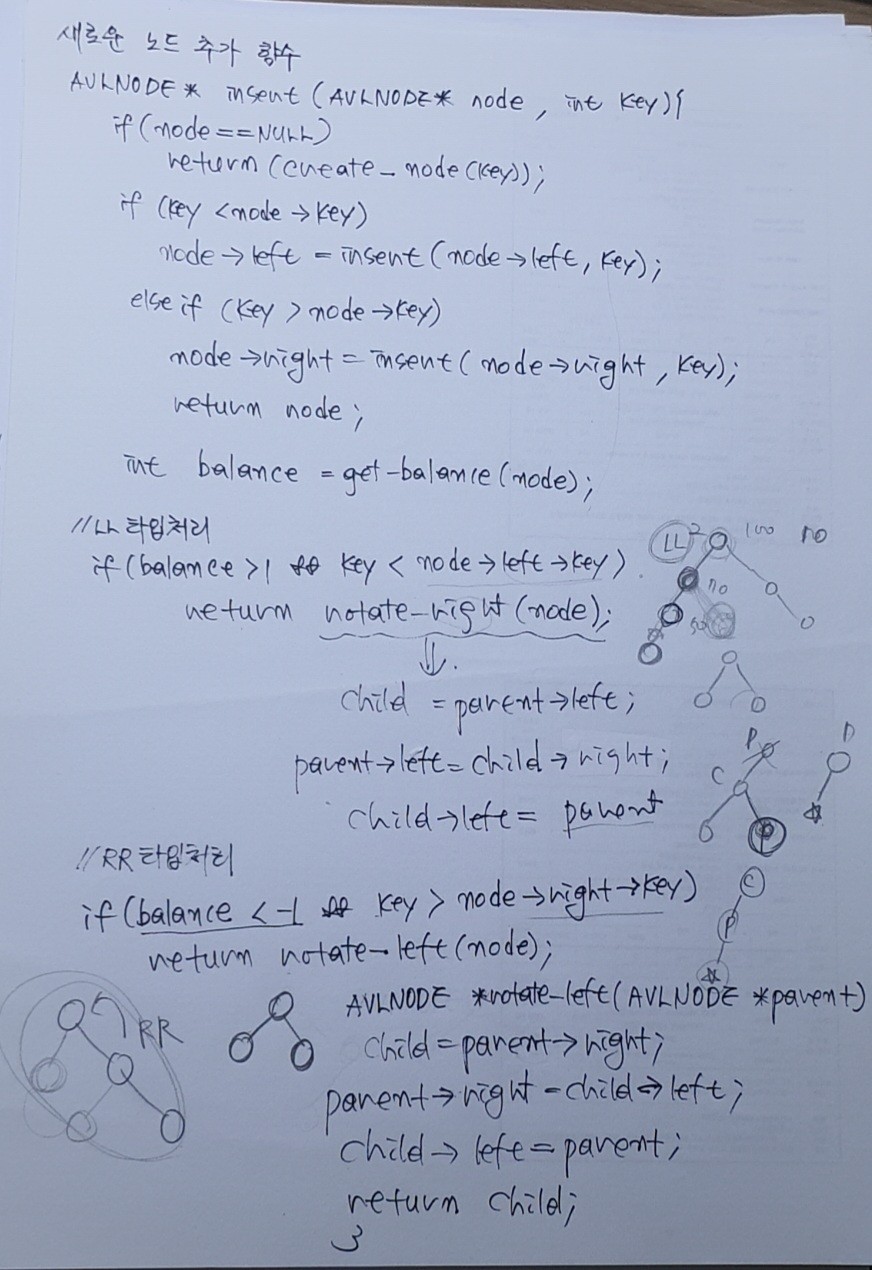 새로운 노드 추가 함수
AVLNODE* insert (AVLNODE* node, int key){
if(node==NULL)
return (create_node(key));
if (key <node→key)
node→left = insert (node→left, key);
else if (key > node→key)
node→right = insert( node→right, key);
return node;
int balance = get-balance(node);
//LL타입처리
if(balance >1 && key < node→left→key)
return rotate-right(node);
LL 2 100 70
70
50
child = parent→left;
parent→left= child→right;
child→left= parent
P
D
C
P
//RR타입처리
if(balance <-1 && key > node→right→key)
return rotate-left(node);
C
P
RR
AVLNODE *rotate-left(AVLNODE *parent)
child=parent→right;
parent→right=child→left;
child→left=parent;
return child;
}